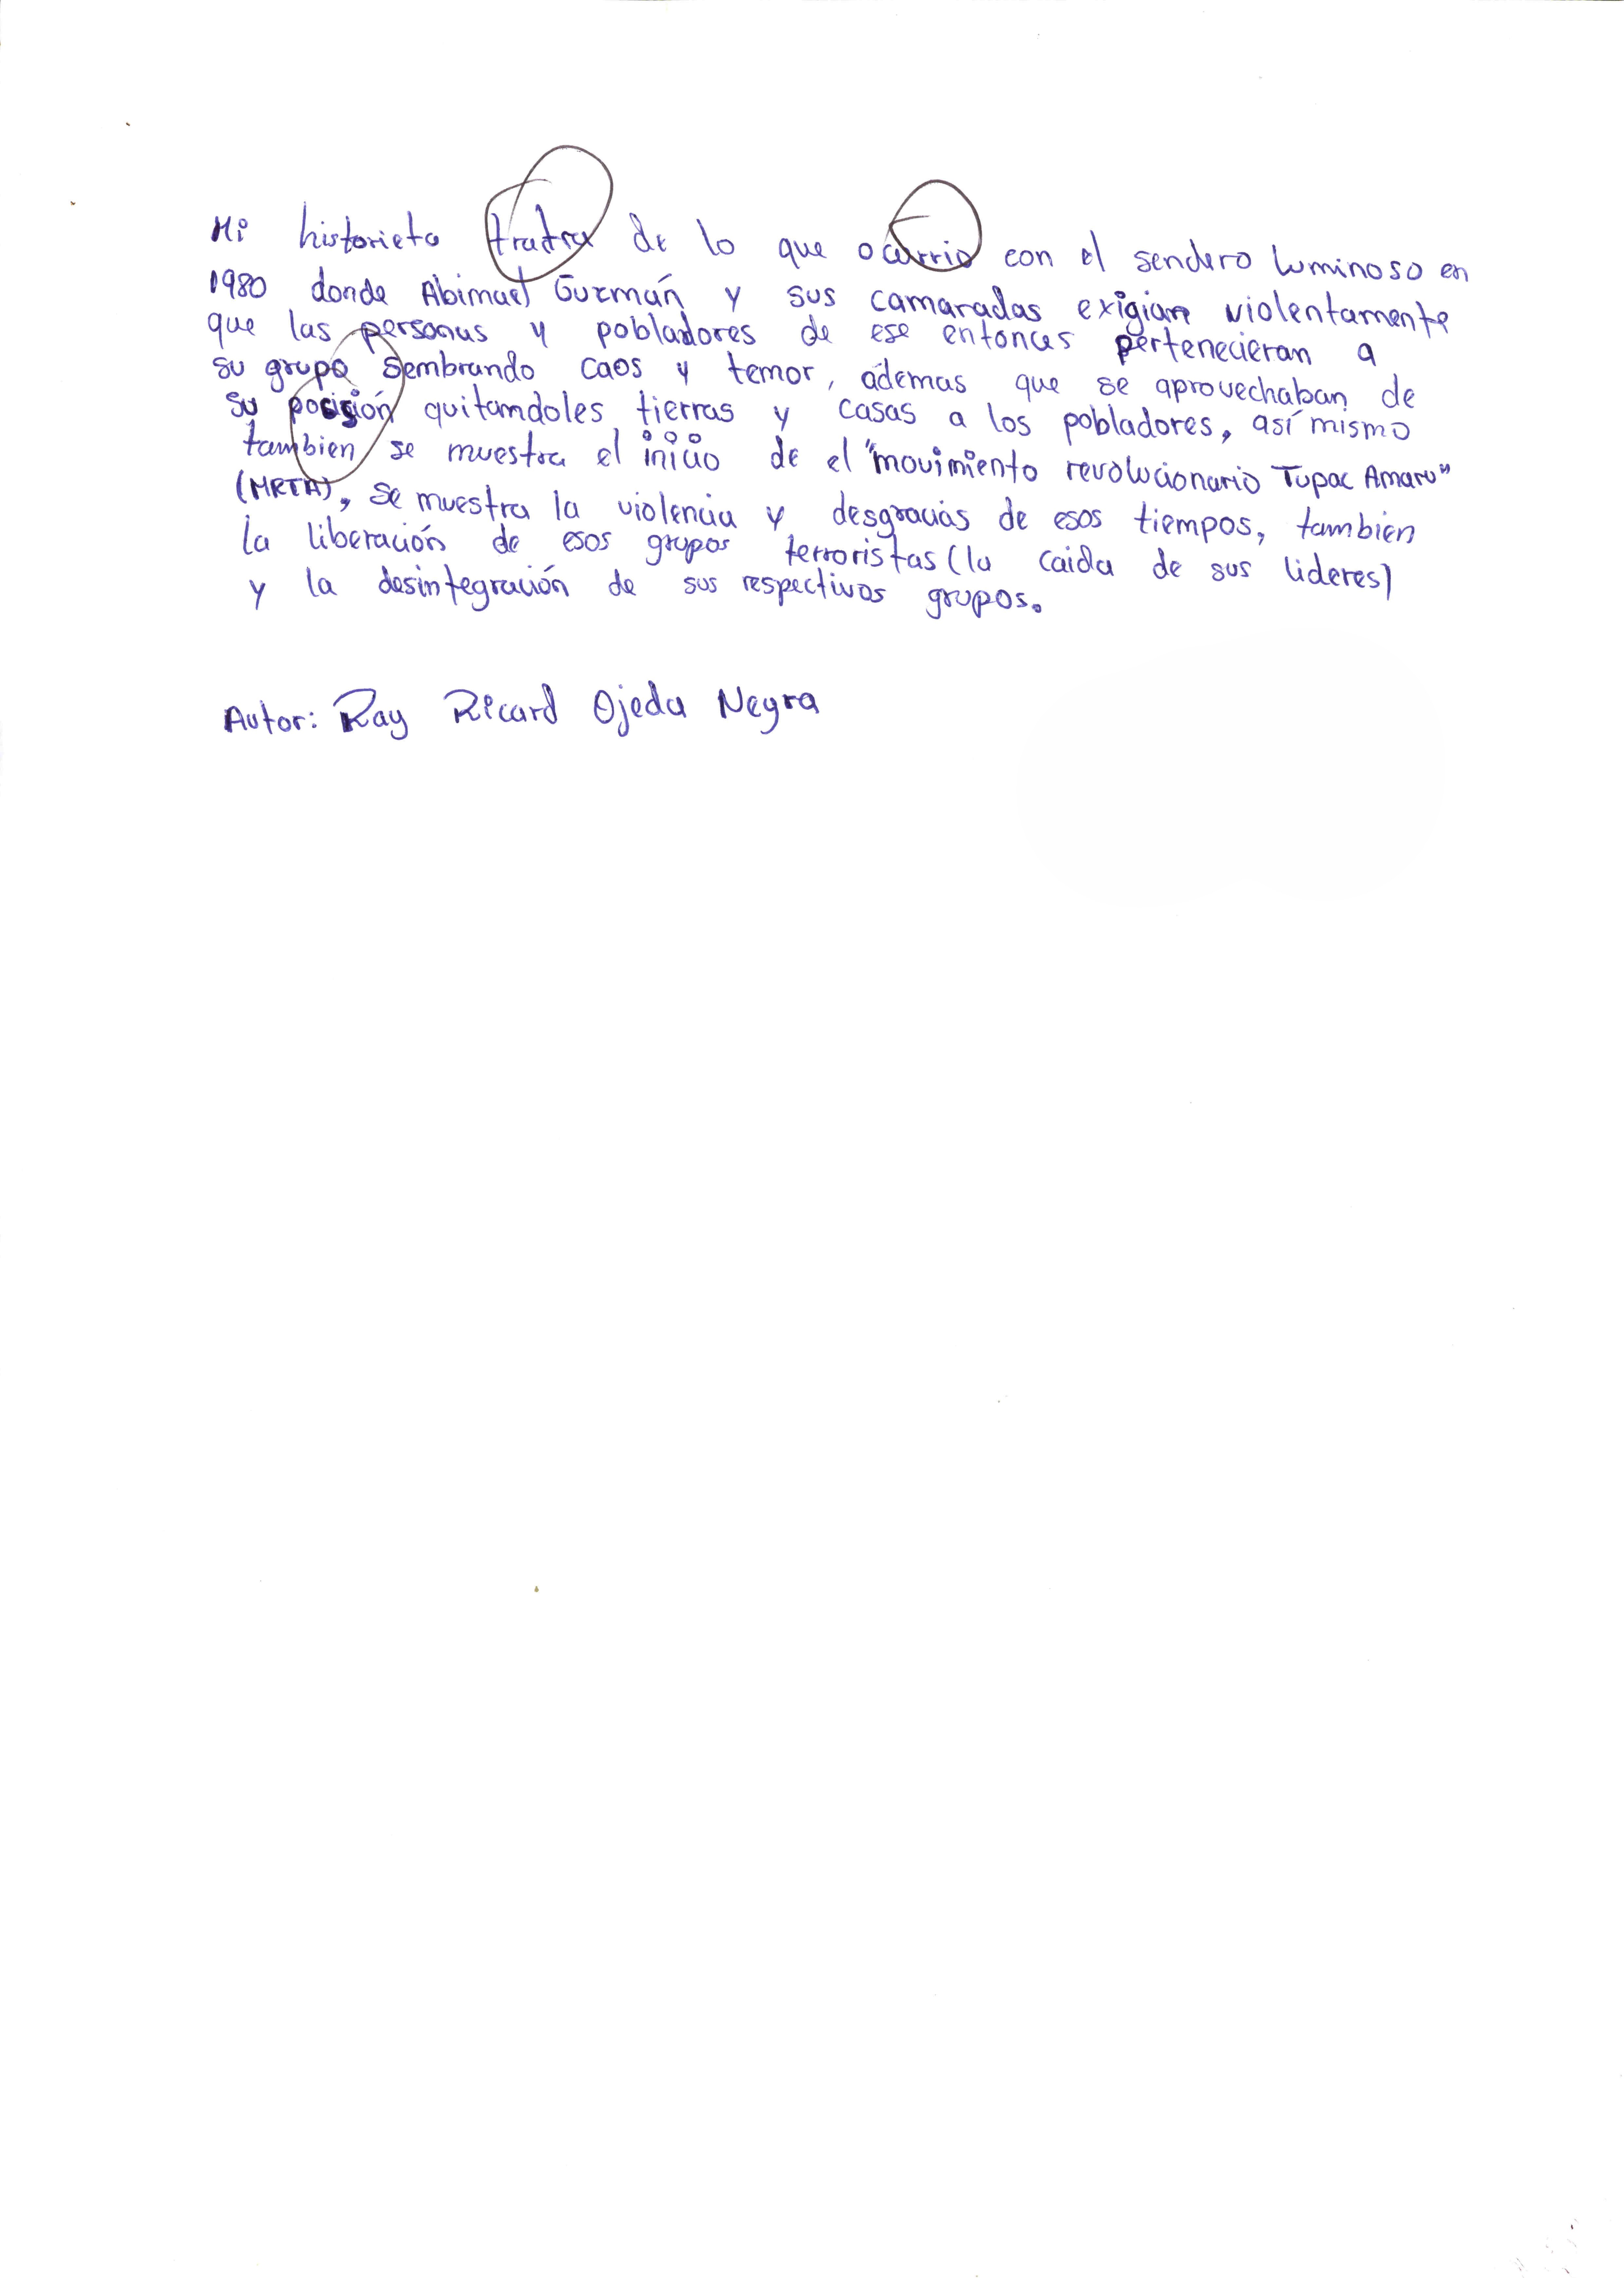 Mi historieta tratra de lo que ocurrio con el sendero luminoso en
1980 donde Abimael Guzmán y sus camaradas exigian violentamente
que las personas y pobladores de ese entonces pertenecieran a
su grupo sembrando caos y temor, ademas que se aprovechaban de
su posisión quitandoles tierras y casas a los pobladores, así mismo
tambien se muestra el inicio de el "movimiento revolucionario Tupac Amaru"
(MRTA), se muestra la violencia y desgracias de esos tiempos, tambien
la liberación de esos grupos terroristas (la caida de sus lideres)
y la desintegración de sus respectivos grupos.
Autor: Ray Ricard Ojeda Negra